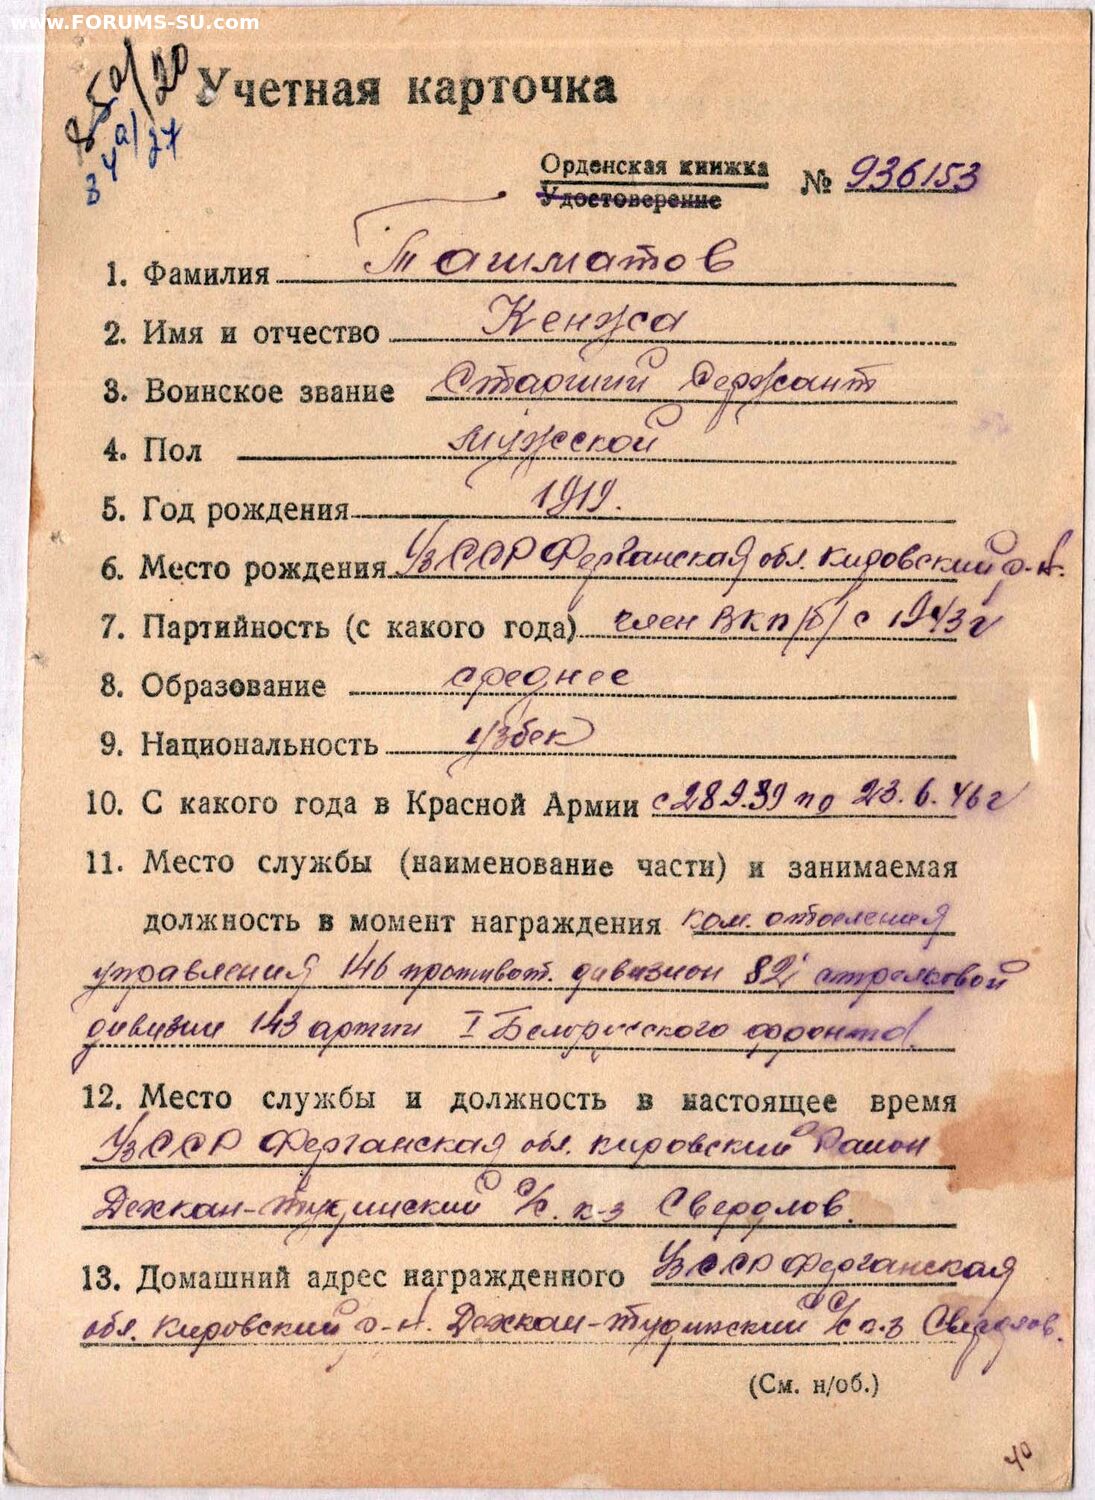 www.FORUMS-SU.com
85а/20
34а/27
Учетная карточка
Орденская книжка
Удостоверение
№ 936153
1. Фамилия Ташматов
2. Имя и отчество Кенжа
3. Воинское звание Старший Сержант
4. Пол мужской
5. Год рождения 1919.
6. Место рождения УзССР Ферганская обл. Кировский р-н.
7. Партийность (с какого года) член ВКП/б/ с 1943г
8. Образование среднее
9. Национальность узбек
10. С какого года в Красной Армии с 28.9.39 по 23.6.46г
11. Место службы (наименование части) и занимаемая
должность в момент награждения ком. отделения
управления 146 противот. дивизион 82 стрелковой
дивизии 143 артпп I Белорусского фронта.
12. Место службы и должность в настоящее время
УзССР Ферганская обл. Кировский Район
Дехкан-тудинский с/с. к-з Свердлов.
13. Домашний адрес награжденного УзССР Ферганская
обл. Кировский р-н. Дехкан-тудинский с/с к-з Свердлов.
(См. н/об.)
40